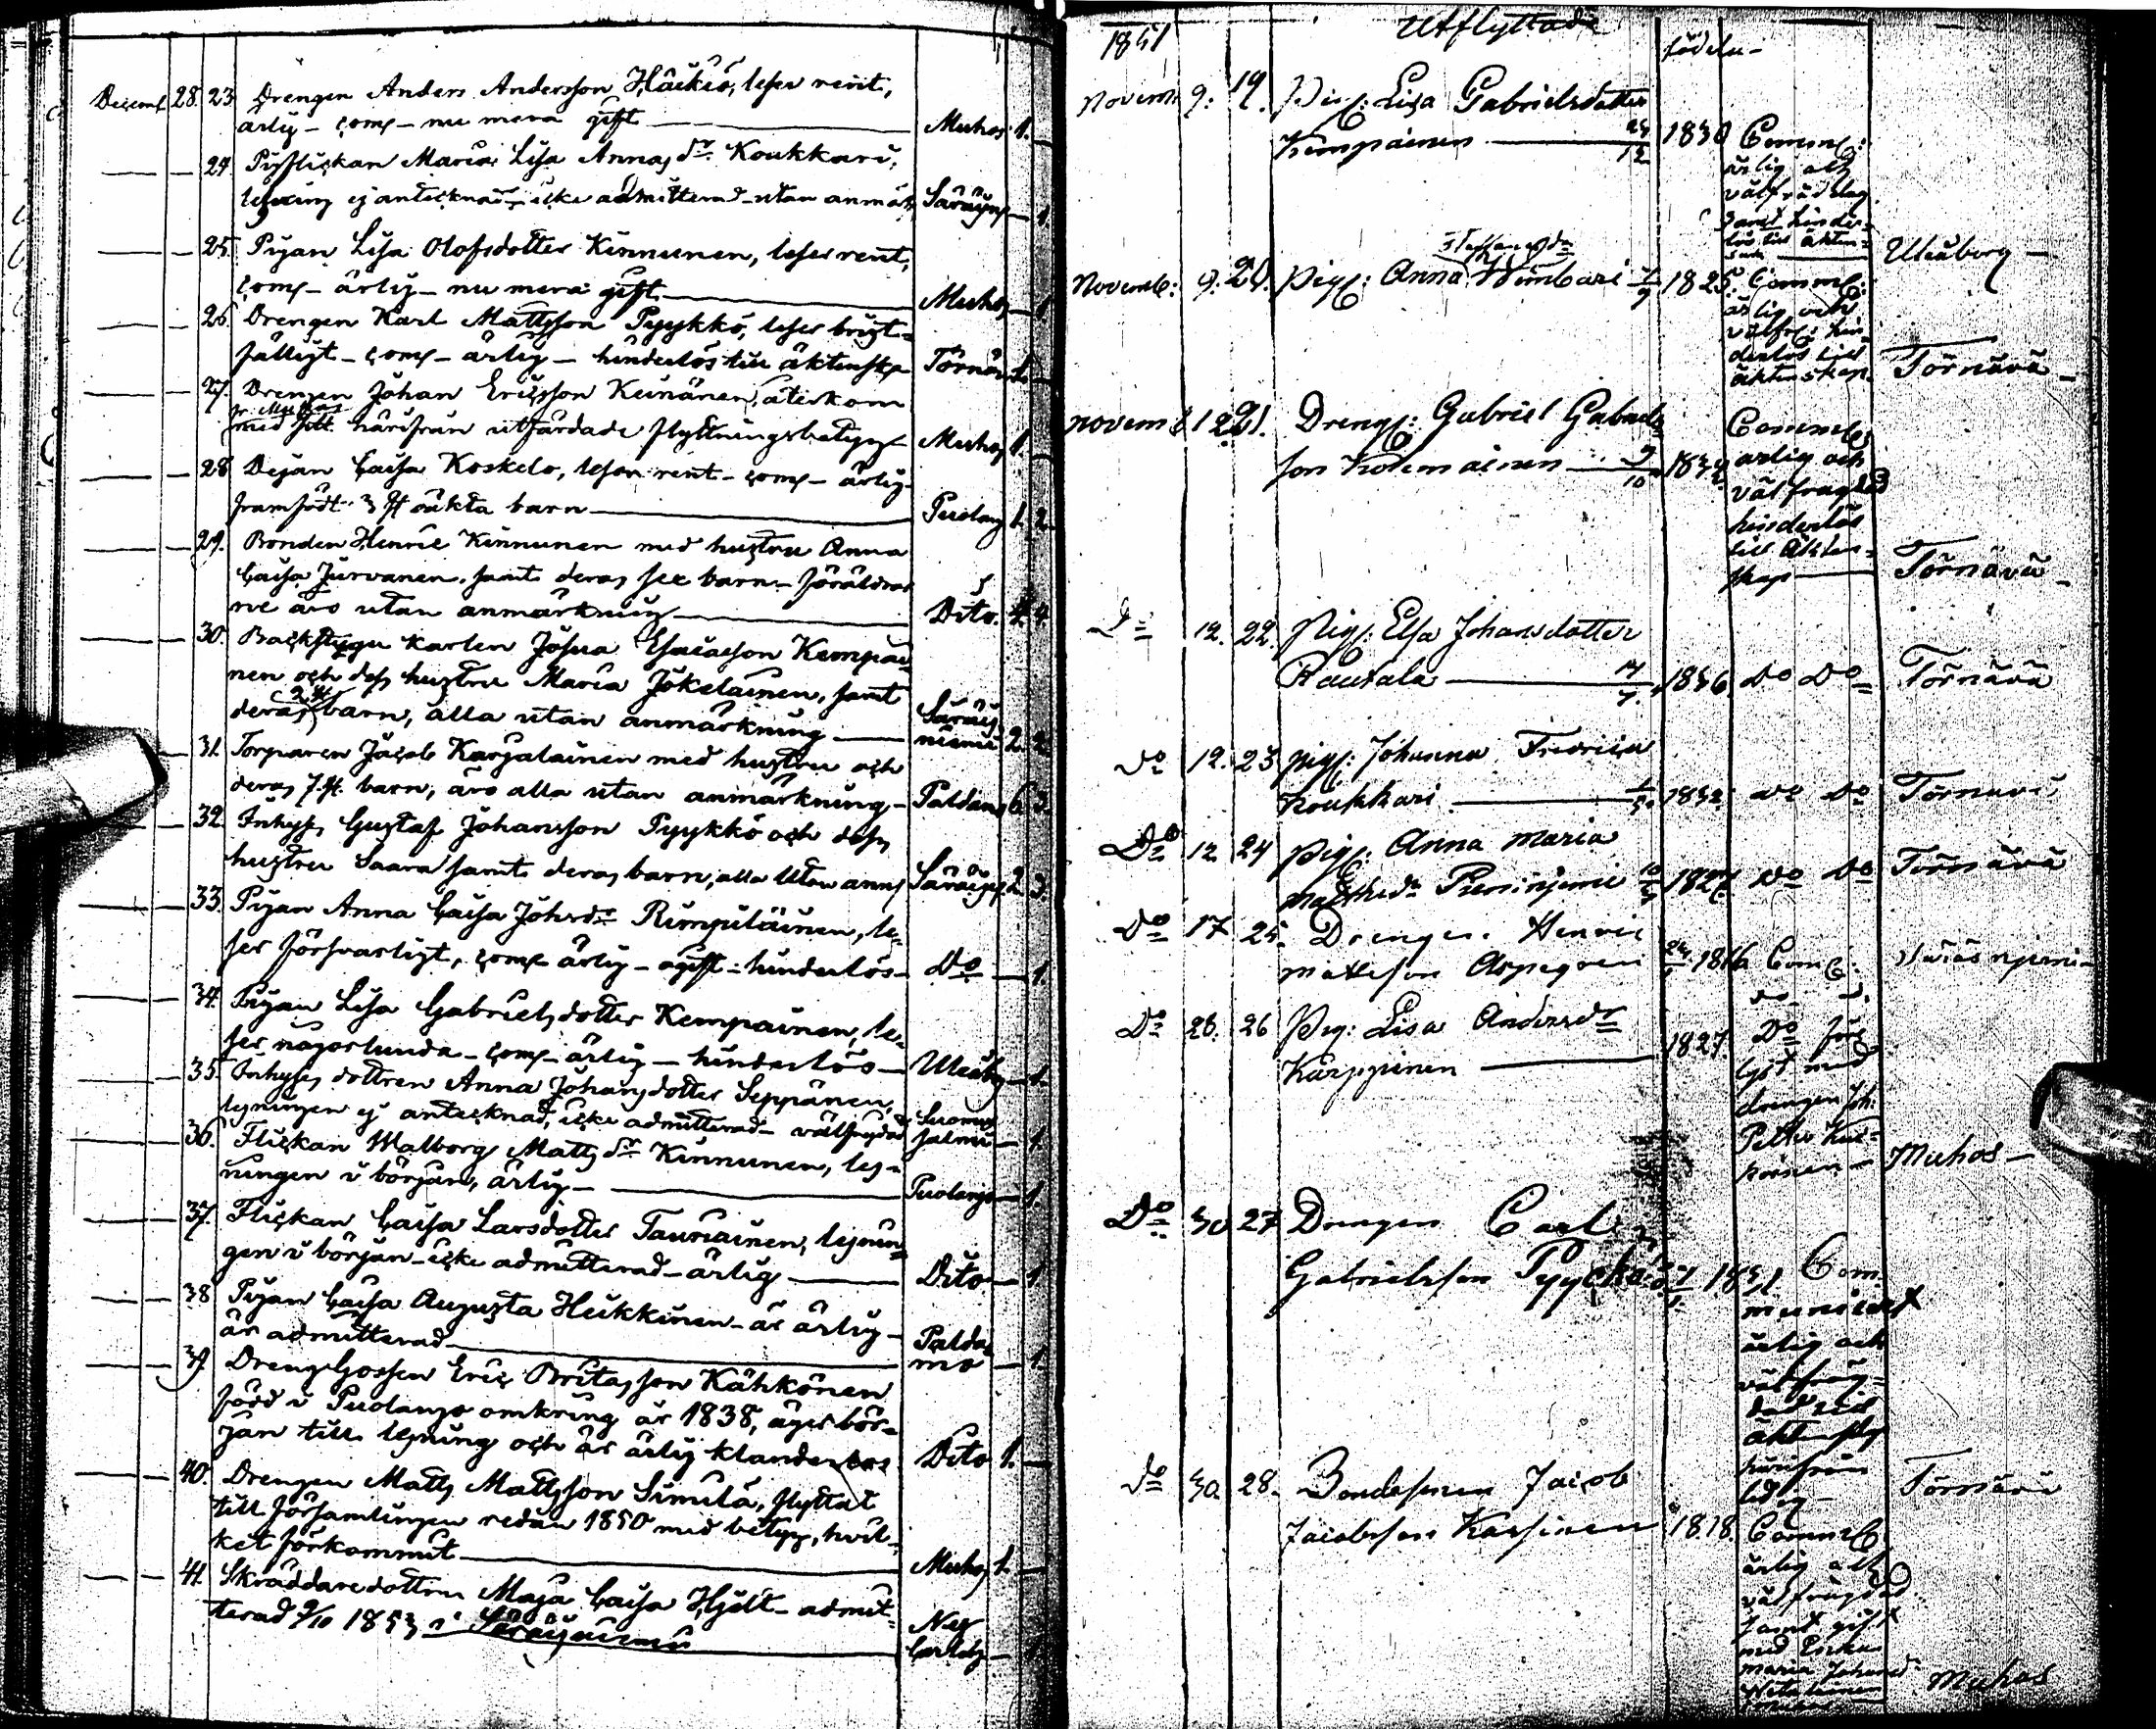 Decemb 28. 23. Drengen Anders Andersson Häikiö, läser rent,
ärlig - com - nu mera gift Muhos 1.
24. Pigflickan Maria Lisa Annasdr Koukkari,
läsning ej antecknad - icke admitterad - utan anmärk Säräisn 1
25. Pigan Lisa Olofsdotter Kinnunen, läser rent,
com - ärlig - nu mera gift Muhos 1
26. Drengen Karl Mattsson Pyykkö, läser brist-
fälligt - com - ärlig - hinderlös till äktensk Törnäv 1.
27. Drengen Johan Ericsson Keinänen, återkom
med härifrån utfärdade flyttningsbetyg Muhos 1.
28. Pigan Caisa Koskelo, läser rent - com - ärlig
framfödt 3 st oäkta barn Puolang 1. 2.
29. Bonden Henric Kinnunen med hustru Anna
Caisa Jurvanen, samt deras sex barn - föräldrar
ne äro utan anmärkning Dito. 4. 4.
30. Backstugu karlen Josua Esaiasson Kempai-
nen och dess hustru Maria Jokelainen, samt
deras 2 st barn, alla utan anmärkning Säräis
niemi 2. 2.
31. Torparen Jacob Karjalainen med hustru och
deras 7 st. barn, äro alla utan anmärkning - Paldamo 6 3.
32. Inhyses Gustaf Johansson Pyykkö och dess
hustru Saara samt deras barn, alla utan anm Säräisn 2. 3.
33. Pigan Anna Caisa Johsdr Rimpiläinen, lä-
ser försvarligt, com ärlig - ogift - hinderlös - Do 1.
34. Pigan Lisa Gabrielsdotter Kempainen, lä-
ser någorlunda - com - ärlig - hinderlös - Uleåbg 1.
35. Inhyses dottren Anna Johansdotter Seppänen,
läsningen ej antecknad, icke admitterad - välfrejdad Suomus
salmi 1.
36. Flickan Walborg Mattsdr Kinnunen, läs-
ningen i början, ärlig - Puolango 1.
37. Flickan Caisa Larsdotter Tauriainen, läsnin-
gen i början - icke admitterad - ärlig Dito 1.
38. Pigan Caisa Augusta Heikkinen - är ärlig -
är admitterad Palda
mo 1.
39. Dreng Gossen Eric Britasson Kähkönen
född i Puolango omkring år 1838, äger bör-
jan till läsning och är ärlig klanderlös Dito 1.
40. Drengen Matts Mattsson Simila, flyttat
till församlingen redan 1850 med betyg, hvil-
ket förkommit Muhos 1.
41. Skräddaredottren Maja Caisa Hjelt - admit-
terad 9/10 1853 i Säräisniemi Ny
Carleby 1
1851 Utflyttade födelse-
Novem 9. 19. Pig: Lisa Gabrielsdotter
Kempainen 24/12 1830 Comm:
ärlig och
välfrädelag
samt hinder-
lös till äkten-
Uleåborg
Novemb: 9. 20. Pig: Anna Staffansdr Wimbari 7/9 1825. Comm:
ärlig och
välfr: hin-
derlös till
äktenskap. Törnävä
novem 12 21. Dreng: Gabriel Gabriels-
son Kolemainen 9/10 1832 Comm
ärlig och
välfragdad
hinderlös
till äkten-
skap Törnävä
Do 12. 22. Pig: Elsa Johansdotter
Rautala 14/7 1836 Do Do Törnävä
Do 12. 23 pig: Johanna Fredrica
Koukkari 1832 Do Do Törnävä
Do 12 24 Pig: Anna Maria
1827 Do Do Törnävä
Do 17 25. Drengen Henric
Mattsson Aspegren 1816 Com: Säräisnjemi
Do 26. 26 Pig: Lisa Andersdr
Karppinen 1827. Do för-
lyst med
drengen Joh:
Petter
Muhos
Do 30 27 Drengen Carl
Gabrielsson Pyyckö 1831 Com
municerat
ärlig och
välfräg-
dad till
äktenskp
härifrån
ledig Törnävä
Do 30. 28. Bondesonen Jacob
Jacobsson Karsinen 1818. Comm
ärlig och
välfrägdad
samt gift
med Pigan
Maria Johansd
Muhos